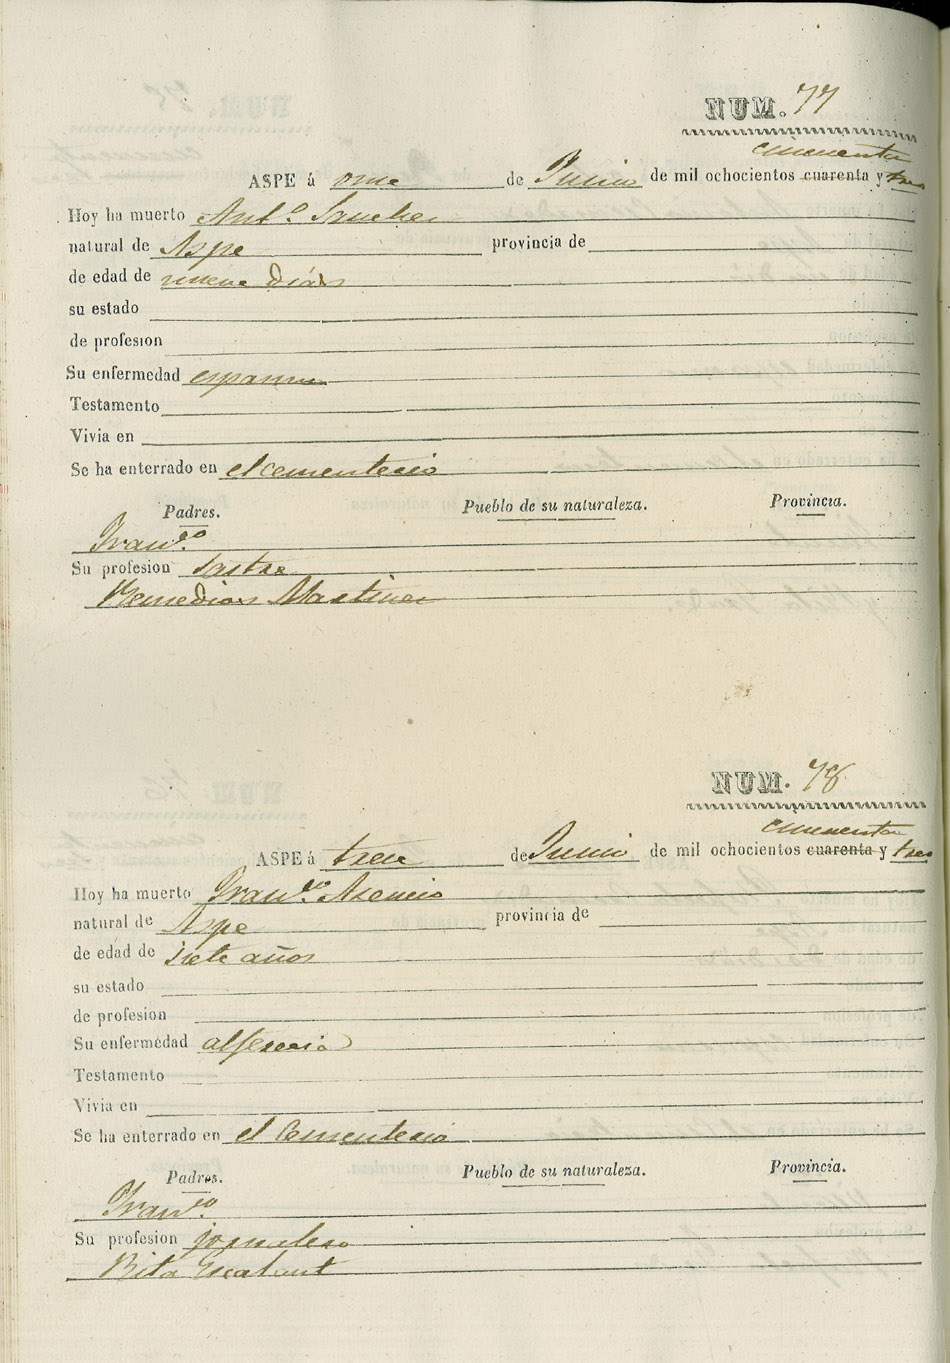 NUM. 77
cincuenta
ASPE á once de Junio de mil ochocientos cuarenta y tres
Hoy ha muerto Ant.º Sanchez
natural de Aspe provincia de
de edad de nueve días
su estado
de profesion
Su enfermedad espasmo
Testamento
Vivia en
Se ha enterrado en el cementerio
Padres. Pueblo de su naturaleza. Provincia.
Fran.co
Su profesion Sastre
Remedios Martinez
NUM. 78
cincuenta
ASPE á trece de Junio de mil ochocientos cuarenta y tres
Hoy ha muerto Fran.co Asencio
natural de Aspe provincia de
de edad de siete años
su estado
de profesion
Su enfermedad alferecia
Testamento
Vivia en
Se ha enterrado en el Cementerio
Padres. Pueblo de su naturaleza. Provincia.
Fran.co
Su profesion jornalero
Rita Escalant